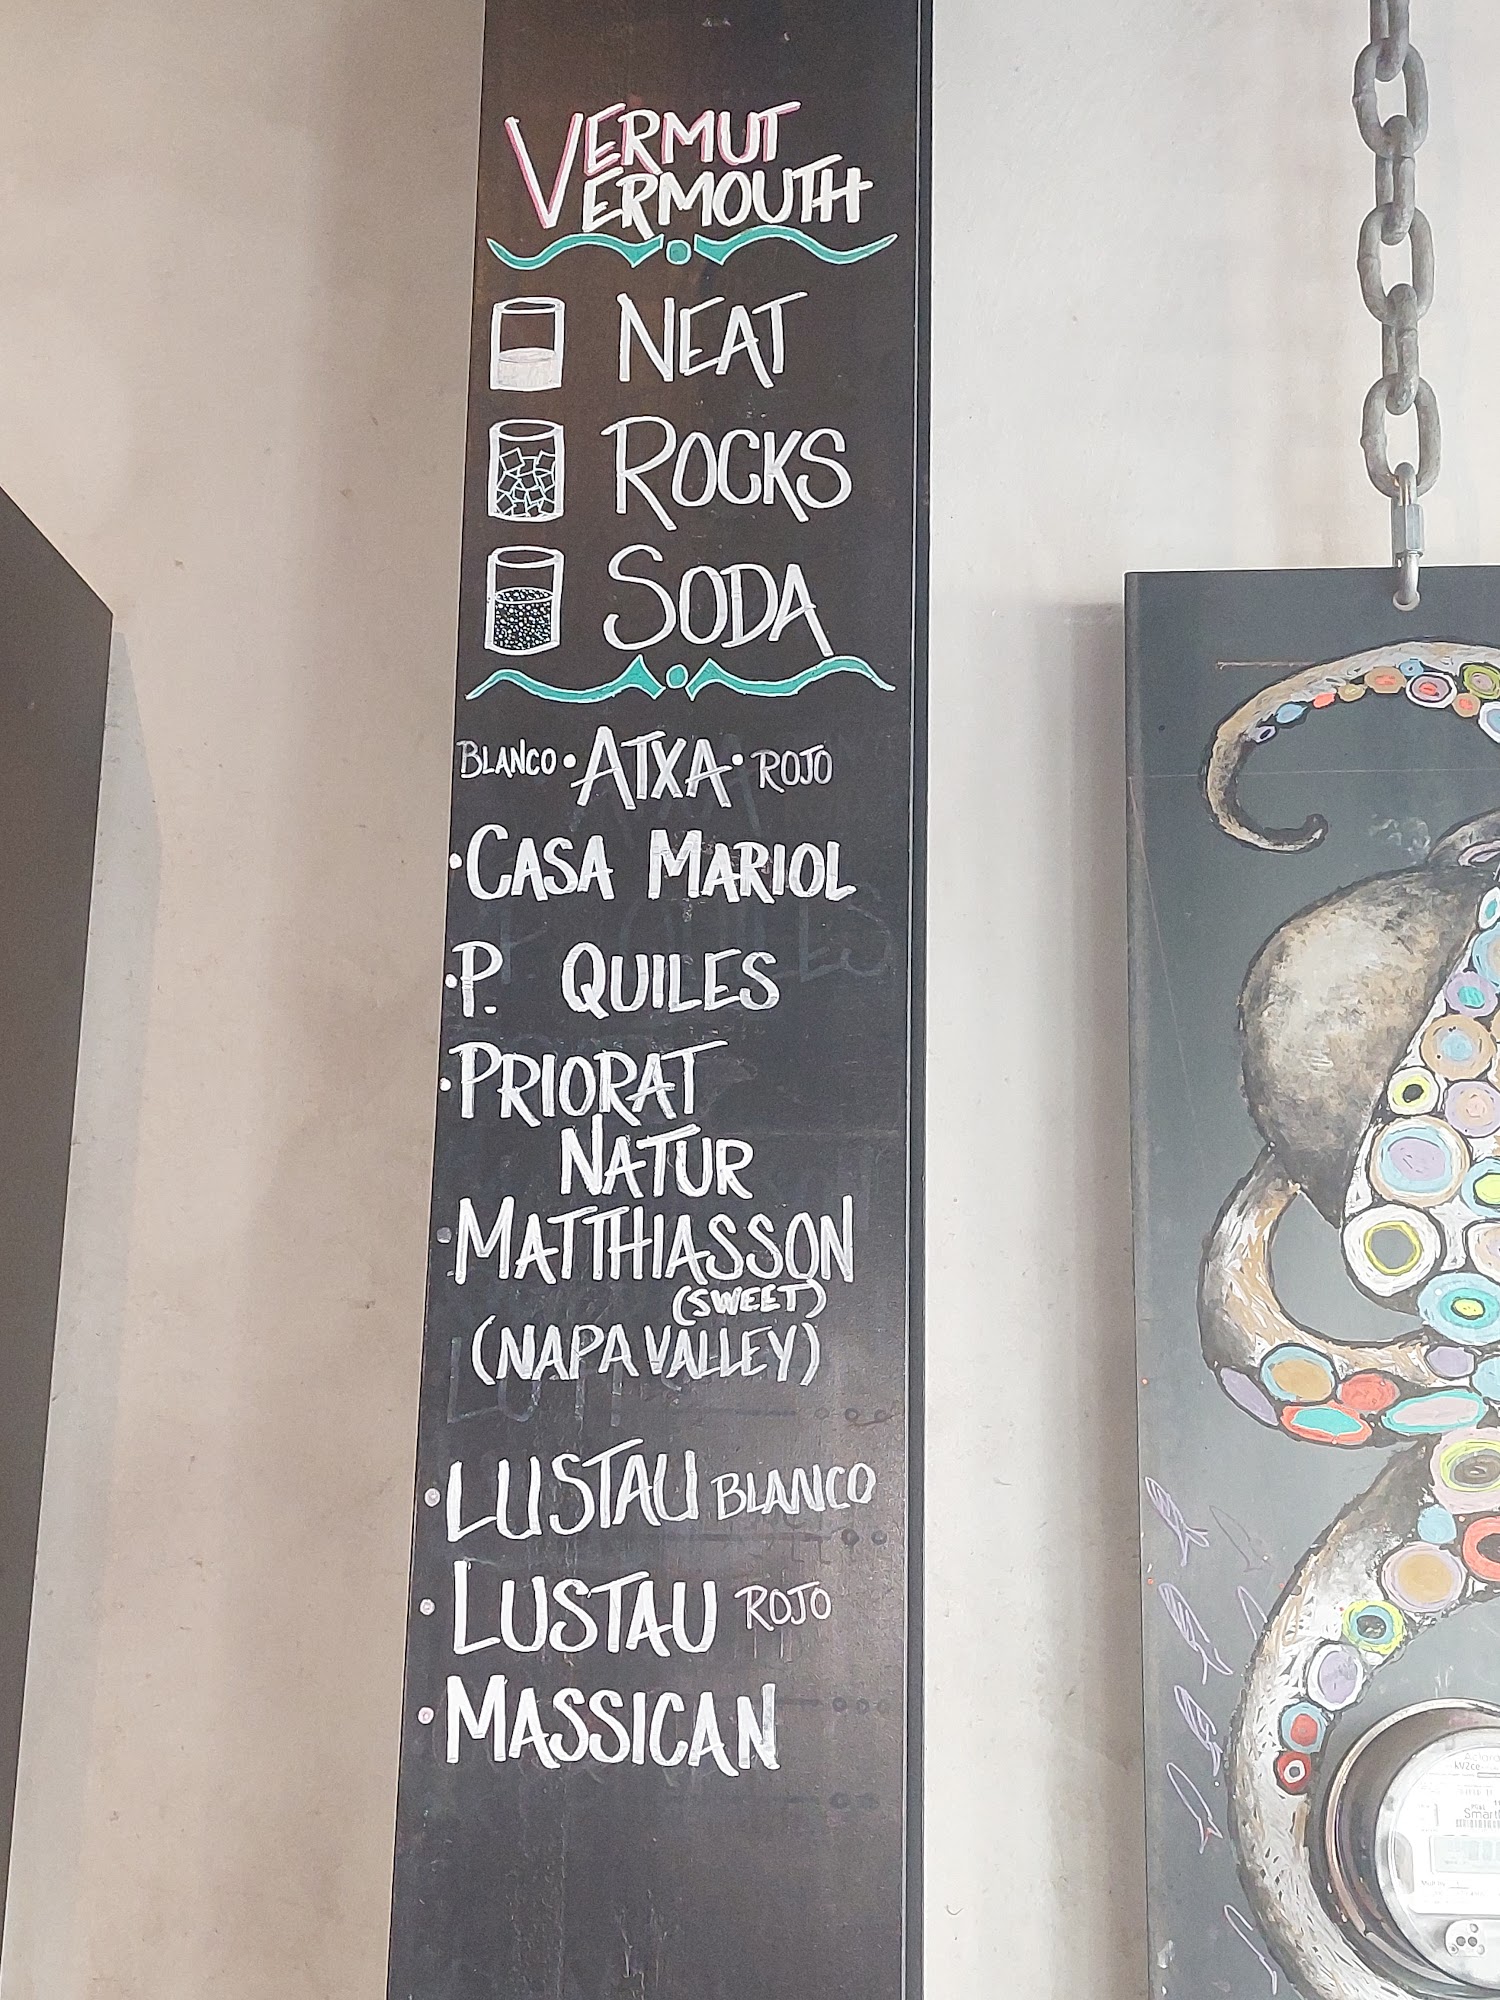 VERMUT
VERMOUTH
NEAT
ROCKS
SODA
BLANCO • ATXA • ROJO
• CASA MARIOL
• P. QUILES
• PRIORAT
NATUR
• MATTHIASSON
(SWEET)
(NAPA VALLEY)
• LUSTAU BLANCO
• LUSTAU ROJO
• MASSICAN